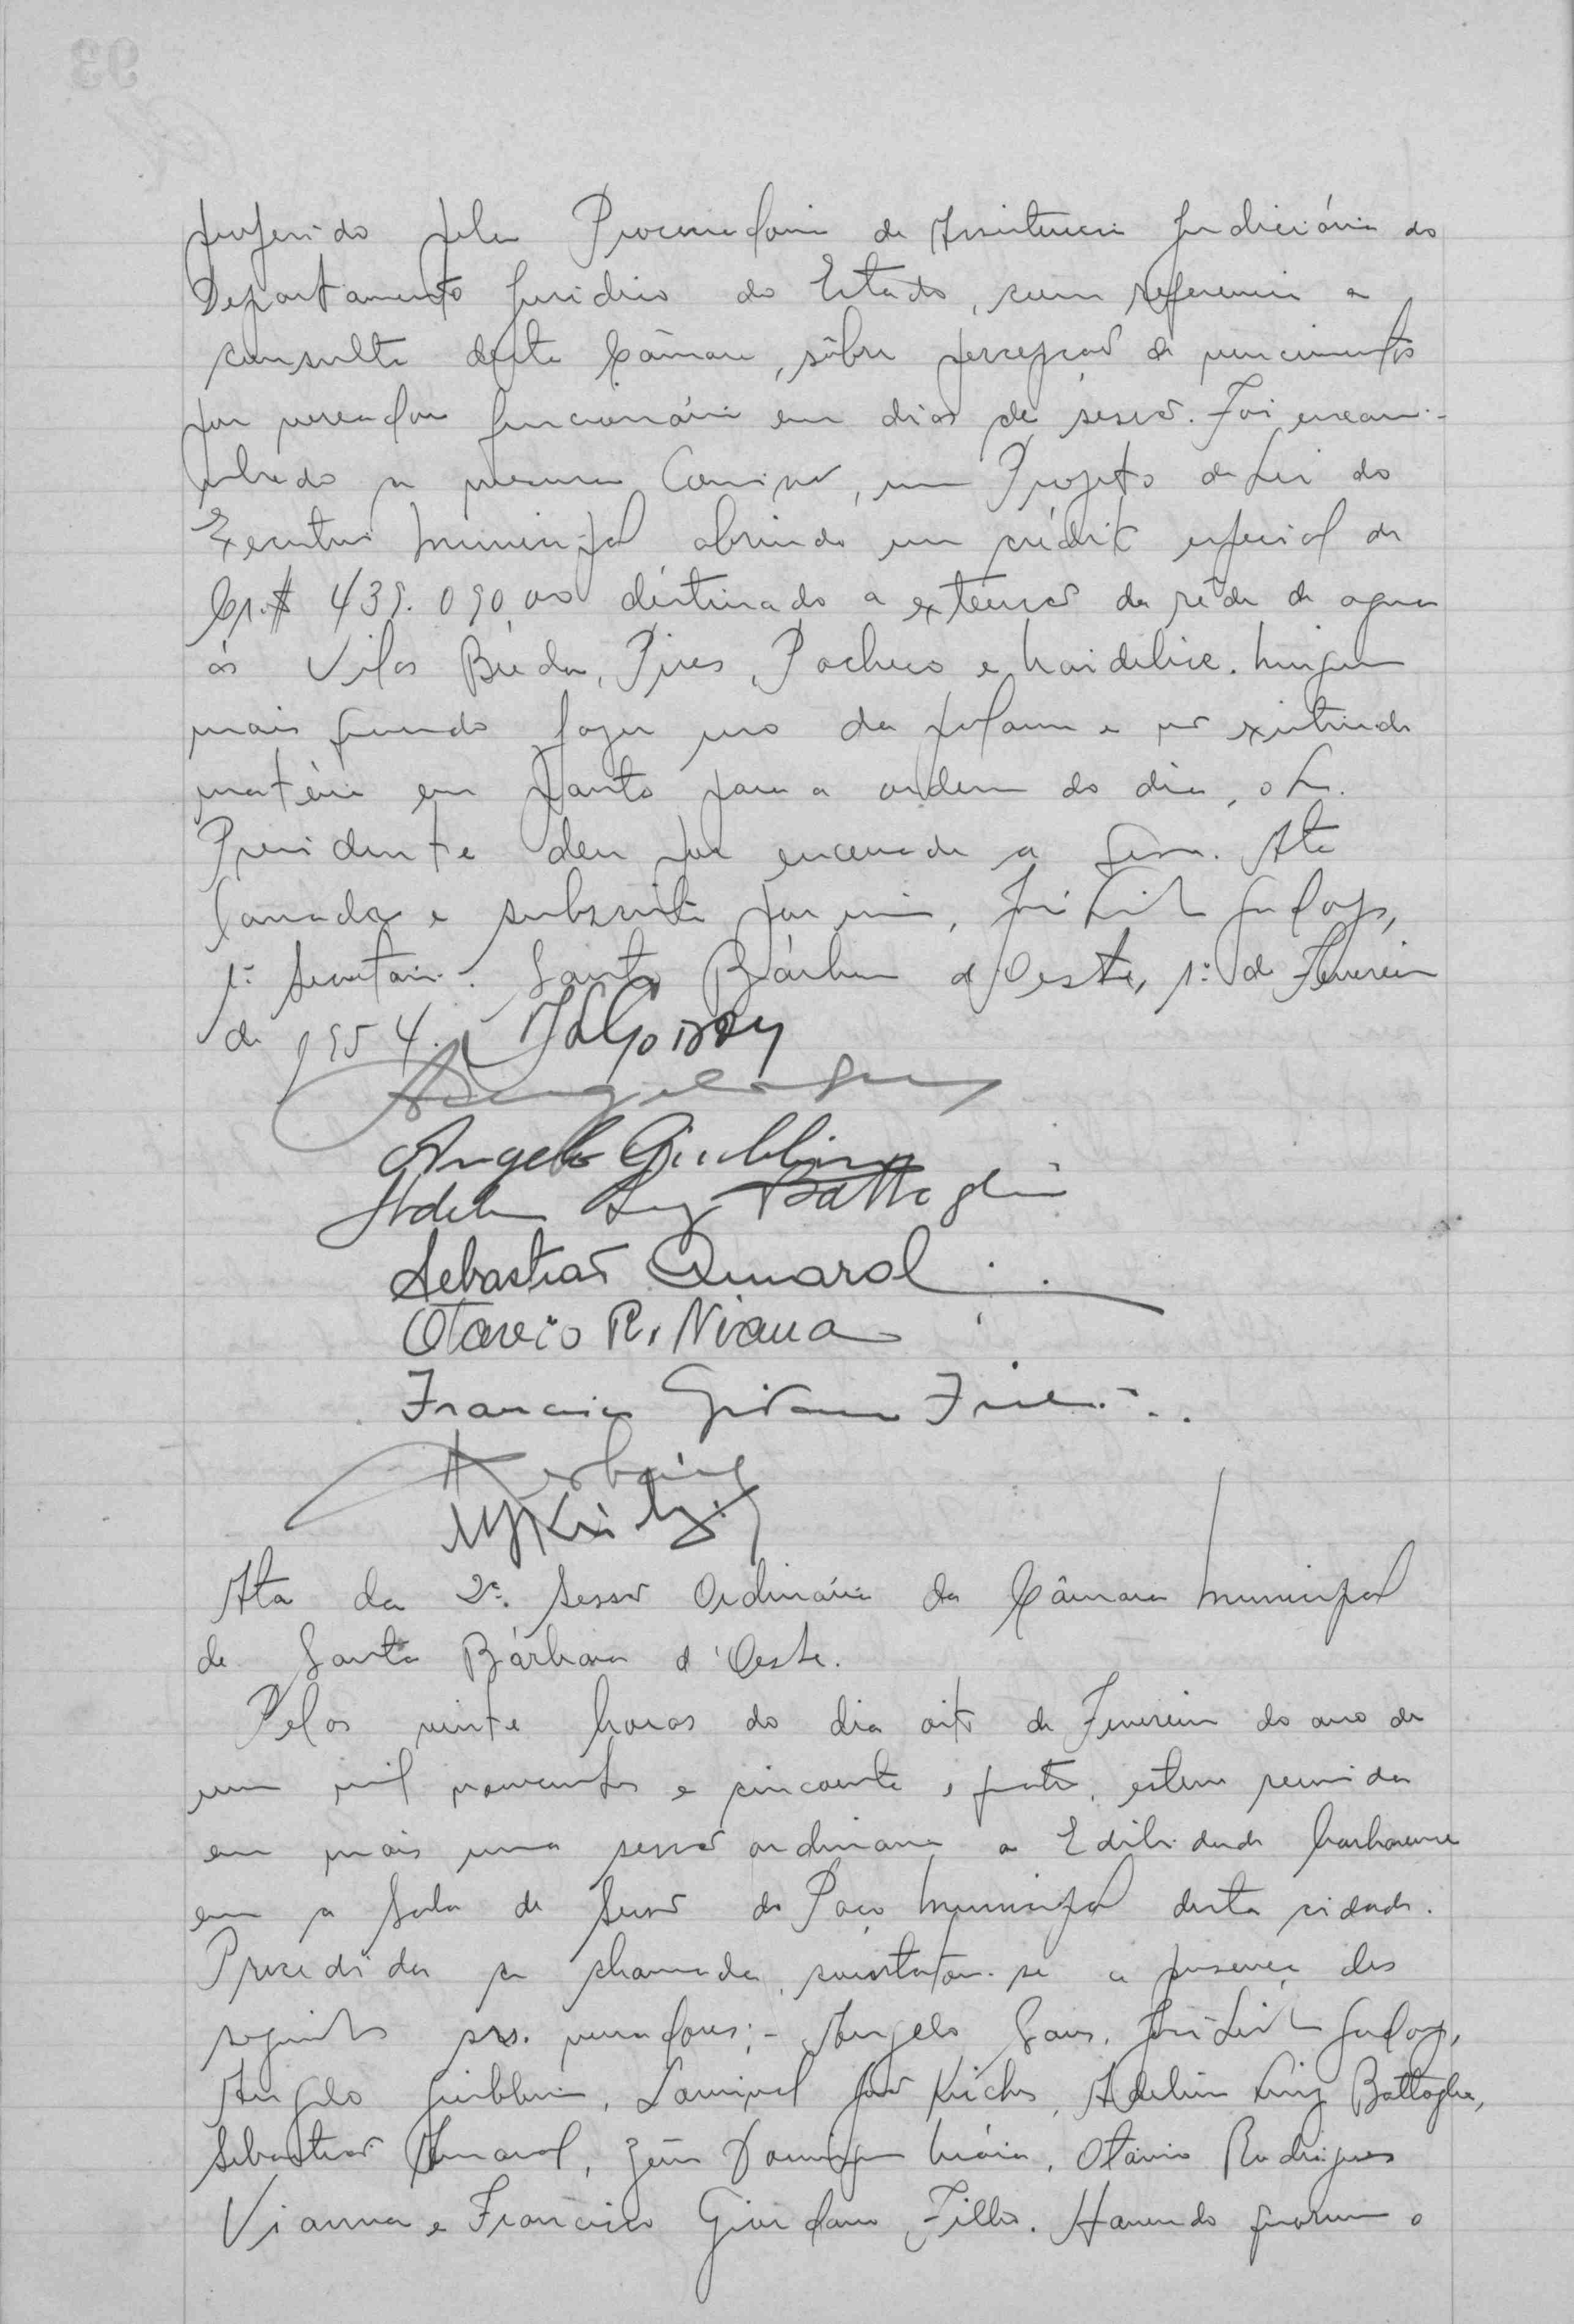 proferido pela Procuradoria de Assistencia Judiciária do
Departamento Juridico do Estado, com referencia a
consulta desta Câmara, sôbre percepção de vencimentos
por vereador funcionário em dias de sessão. Foi encami-
nhado a mesma Comissão, um Projeto de Lei do
Executivo Municipal abrindo um crédito especial de
Cr.$ 439.090,00 déstinado a extensão da rêde de agua
ás Vilas Breda, Pires, Pacheco e. Ninguem
mais querendo fazer uso da palavra e não existindo
matéria em pauta para a ordem do dia, o Sr.
Presidente deu por encerrada a Sessão. Ata
lavrada e subscrita por mim, José Godoy,
1º Secretário. Santa Bárbara d'Oeste, 1º de Fevereiro
de 1954.
Angelo Giubbina
Adelino Luiz Battaglia
Sebastião Amaral
Otavio R. Viana
Francisco Giordano Filho
Ata da 2ª. Sessão Ordinária da Câmara Municipal
de Santa Bárbara d'Oeste.
Pelas vinte horas do dia oito de Fevereiro do ano de
um mil novecentos e cincoenta e quatro, esteve reunida
em mais uma sessão ordinaria a Edilidade barbarense
em a Sala de Sessão do Paço Municipal desta cidade.
Procedida a chamada, constatou-se a presença dos
seguintes srs. vereadores:- Angelo Sans, José Godoy,
Angelo Giubbina, Lourival Kirche, Adelino Luiz Battaglia,
Sebastião Amaral, Domingues, Otávio Rodrigues
Vianna e Francisco Giordano Filho. Havendo quorum o